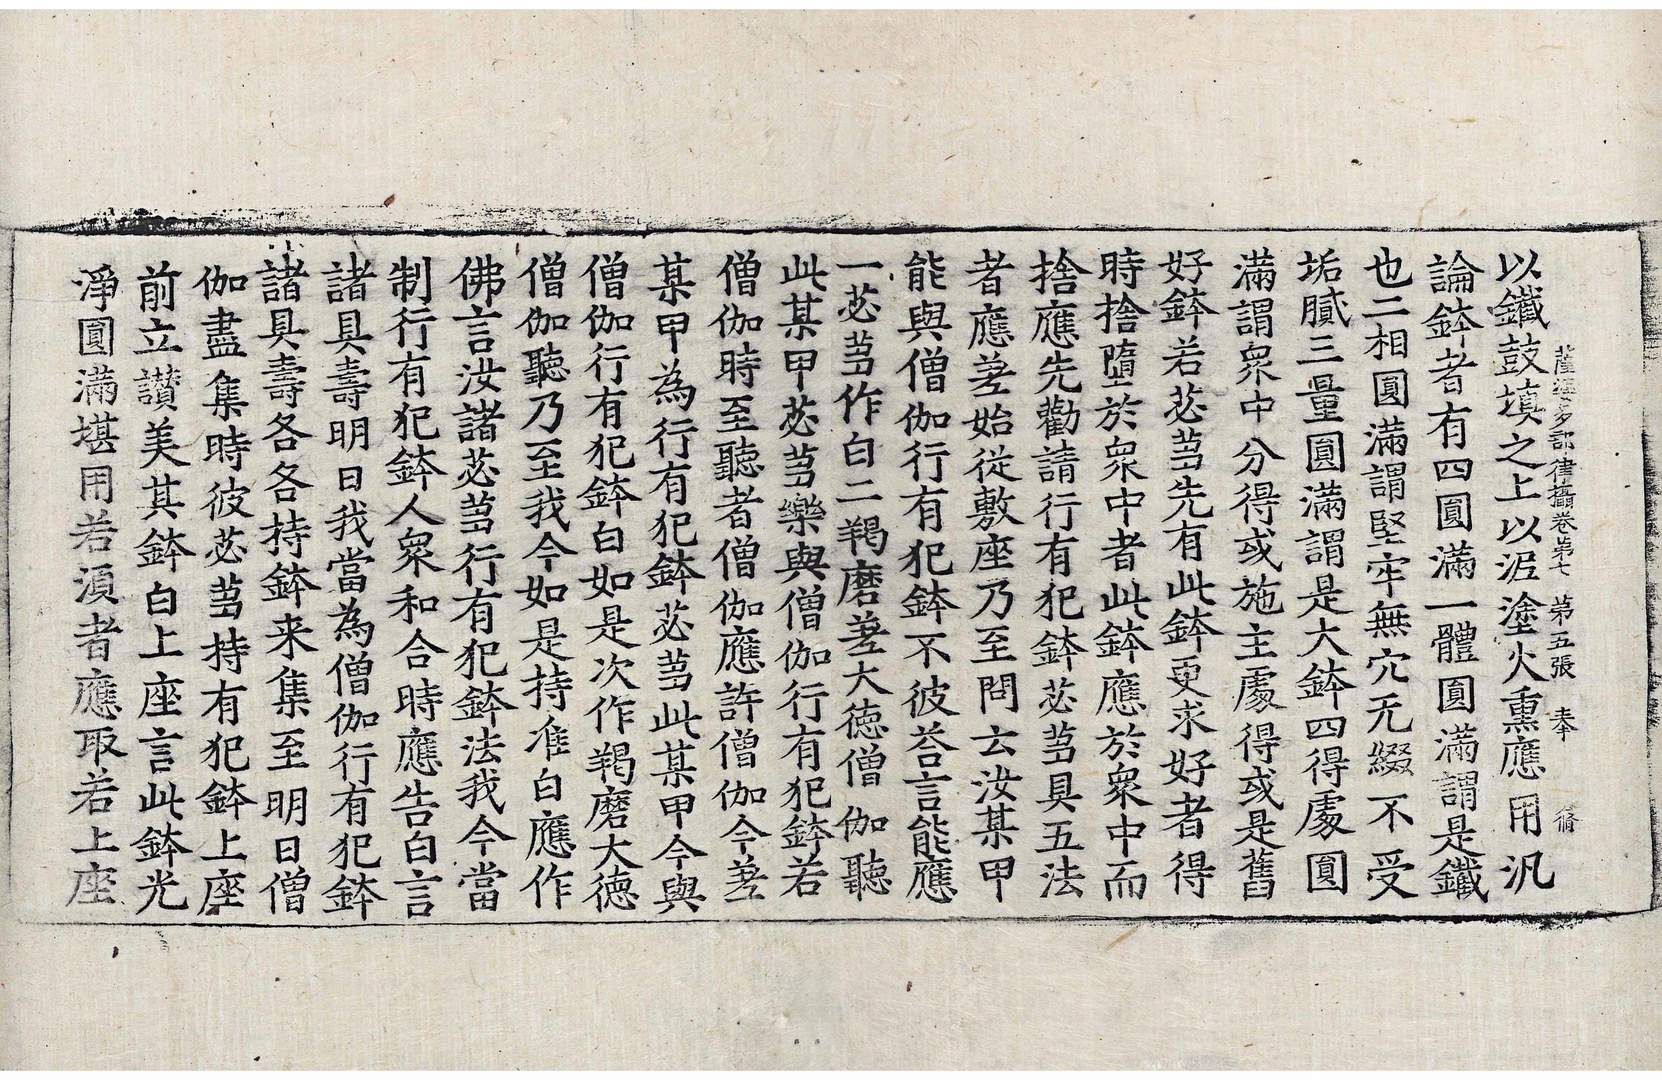 薩婆多部律攝卷第七　第五張　奉　脩
以鐵鼓填之上以泥塗火熏應用汎
論鉢者有四圓滿一體圓滿謂是鐵
也二相圓滿謂堅牢無穴无綴不受
垢膩三量圓滿謂是大鉢四得處圓
滿謂衆中分得或施主處得或是舊
好鉢若苾芻先有此鉢更求好者得
時捨墮於衆中者此鉢應於衆中而
捨應先勸請行有犯鉢苾芻具五法
者應差始從敷座乃至問云汝某甲
能與僧伽行有犯鉢不彼荅言能應
一苾芻作白二羯磨差大德僧伽聽
此某甲苾芻樂與僧伽行有犯鉢若
僧伽時至聽者僧伽應許僧伽今差
某甲為行有犯鉢苾芻此某甲今與
僧伽行有犯鉢白如是次作羯磨大德
僧伽聽乃至我今如是持准白應作
佛言汝諸苾芻行有犯鉢法我今當
制行有犯鉢人衆和合時應告白言
諸具壽明日我當為僧伽行有犯鉢
諸具壽各各持鉢来集至明日僧
伽盡集時彼苾芻持有犯鉢上座
前立讚美其鉢白上座言此鉢光
淨圓滿堪用若須者應取若上座